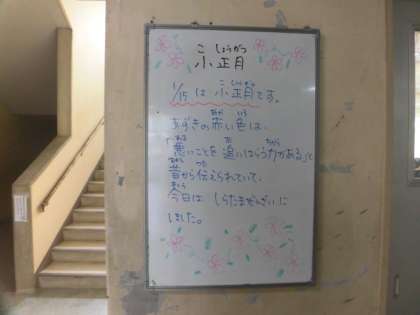 こ しょうがつ
小正月
1/15 は 小正月です。
あずきの赤い色は、
「悪いことを 追いはらう力がある」と
昔から伝えられていて、
今日は しらたまぜんざいに
しました。